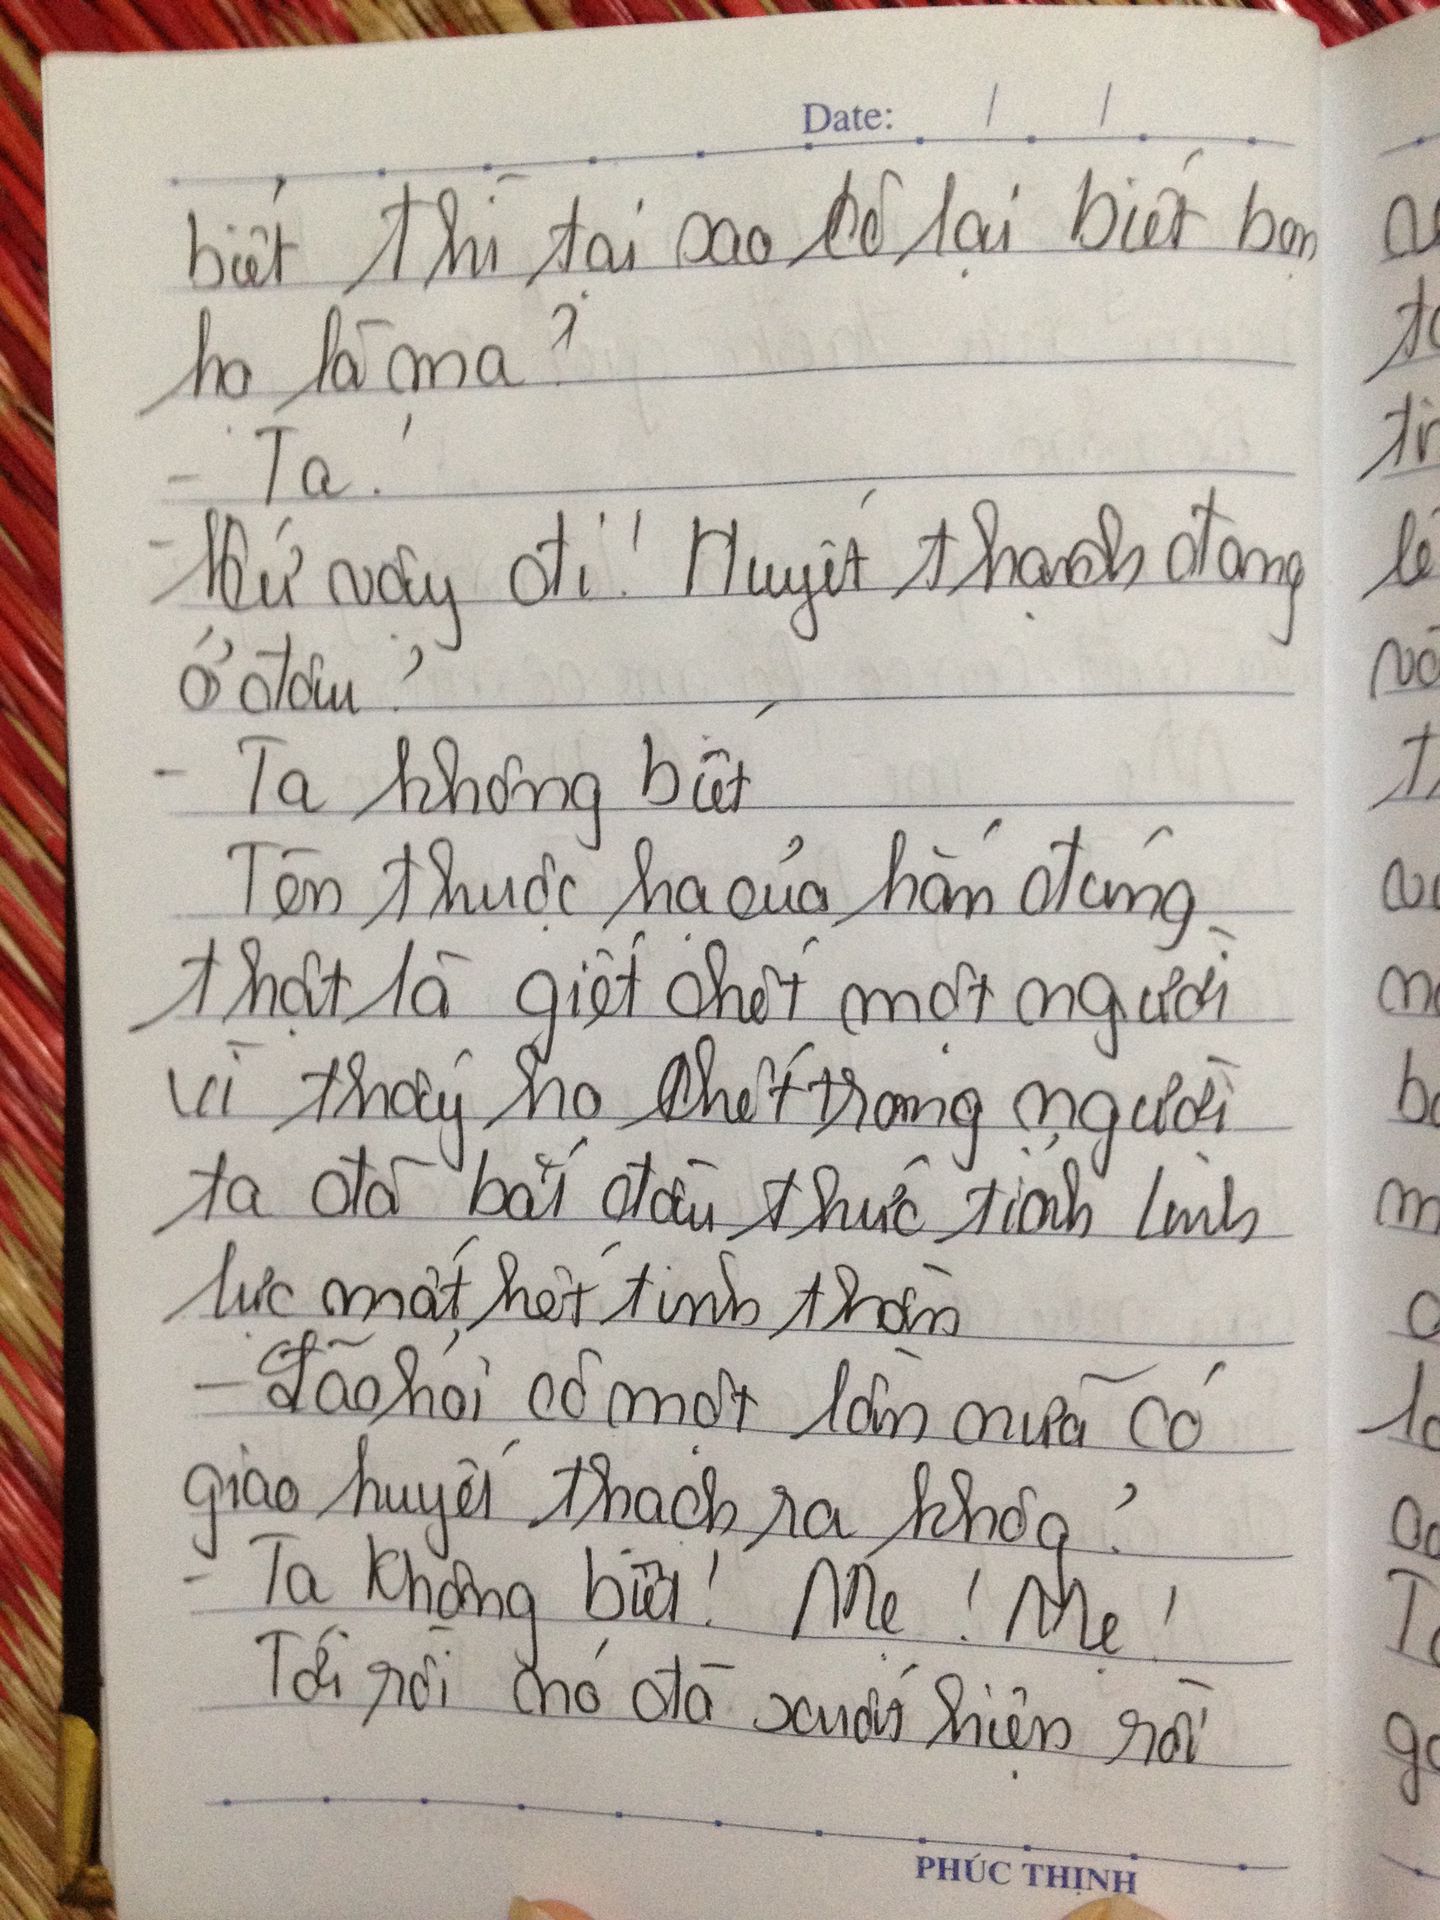 Date: / /
biết thì tại sao cô lại biết bọn
họ là ma?
- Ta!
- Hứ vậy đi! Huyết thạch đang
ở đâu?
- Ta không biết
Tên thuộc hạ của hắn đang
thật là giết chết một người
vì thấy họ chết trong người
ta đã bắt đầu thức tỉnh linh
lực mất hết tinh thần
- Lão hỏi cô một lần nữa có
giao huyết thạch ra khôg?
- Ta không biết! Mẹ! Mẹ!
Tới rồi chó đã xuất hiện rồi
PHÚC THỊNH